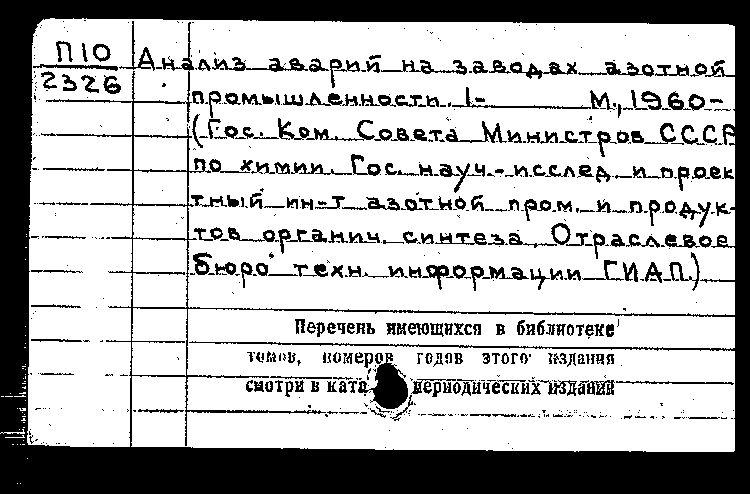 П10
2326
Анализ аварий на заводах азотной
промышленности. 1- М., 1960-
(Гос. Ком. Совета Министров СССР
по химии. Гос. науч.-исслед. и проек
тный ин-т азотной пром. и продук-
тов органич. синтеза. Отраслевое
бюро техн. информации ГИАП.)
Перечень имеющихся в библиотеке
томов, номеров годов этого издания
смотри в ката периодических изданий